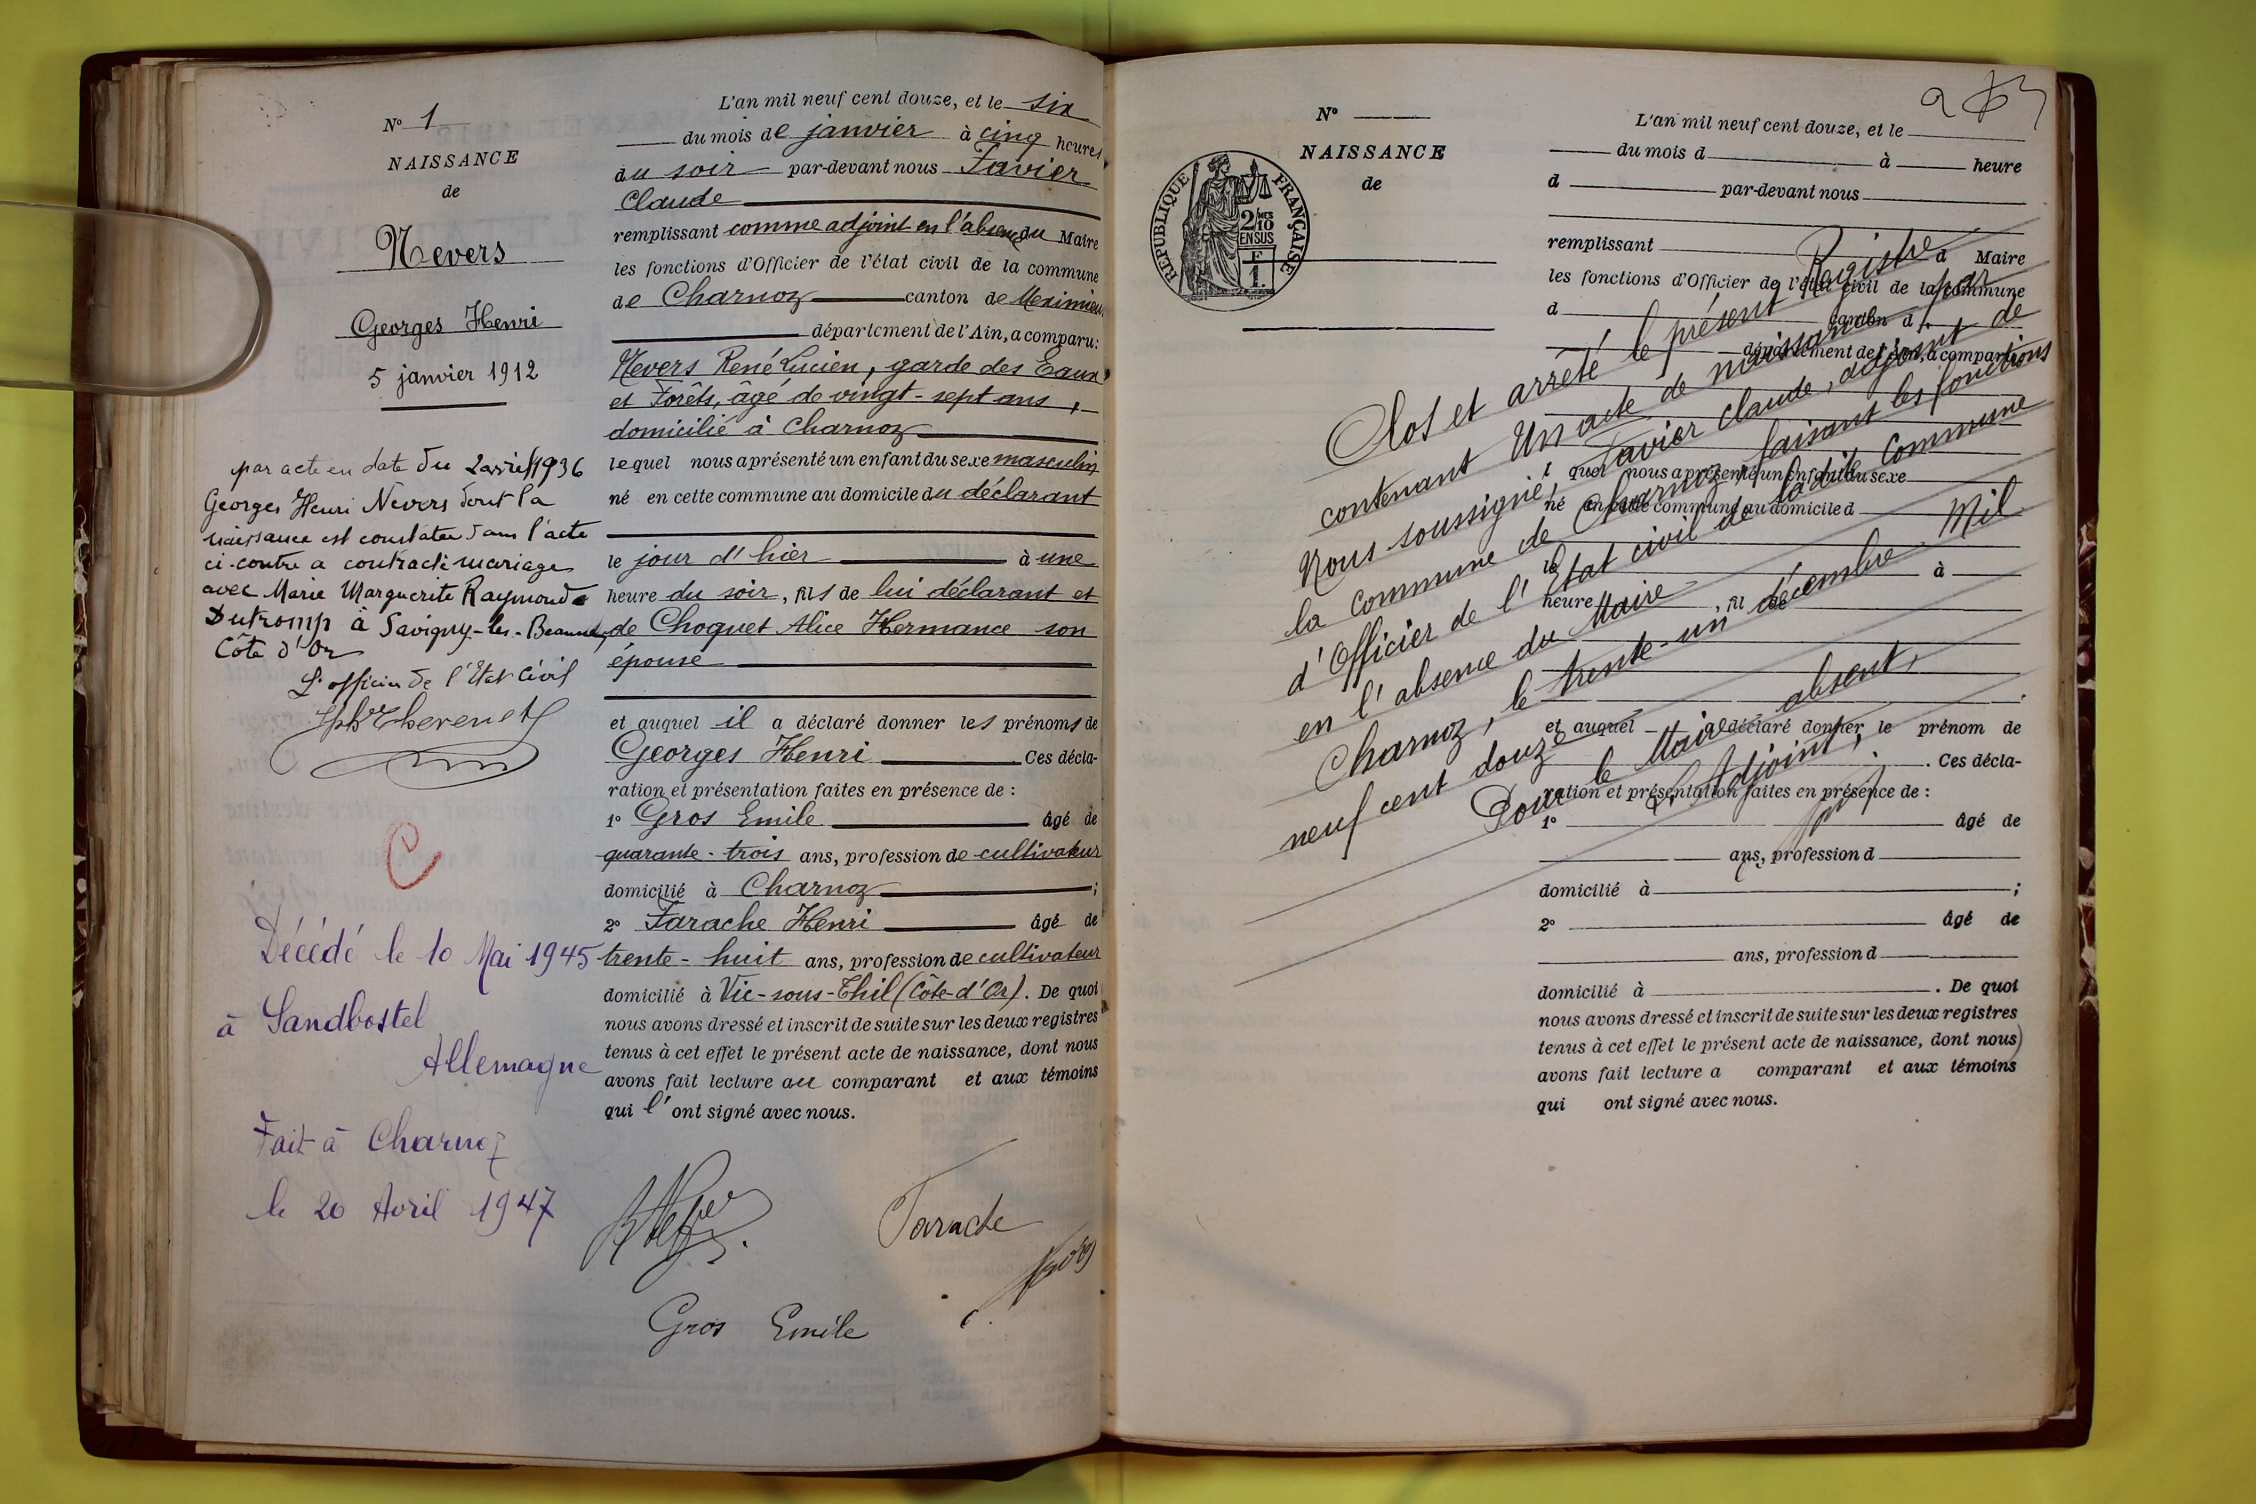 N° 1
NAISSANCE
de
Nevers
Georges Henri
5 janvier 1912
par acte en date du 2 avril 1936
Georges Henri Nevers dont la
naissance est constatée dans l'acte
ci-contre a contracté mariage
avec Marie Marguerite Raymonde
Dutromp à Savigny-les-Beaune,
Côte d'Or
L'officier de l'Etat Civil
C
Décédé le 10 Mai 1945
à Sandbostel
Allemagne
Fait à Charnoz
le 20 Avril 1947
L'an mil neuf cent douze, et le six
du mois de janvier à cinq heures
du soir par-devant nous Favier
Claude
remplissant comme adjoint en l'absence du Maire
les fonctions d'Officier de l'état civil de la commune
de Charnoz canton de Meximieux
département de l'Ain, a comparu:
Nevers René Lucien, garde des Eaux
et Forêts, âgé de vingt-sept ans,
domicilié à Charnoz
lequel nous a présenté un enfant du sexe masculin
né en cette commune au domicile du déclarant
le jour d'hier à une
heure du soir, fils de lui déclarant et
de Choquet Alice Hermance son
épouse
et auquel il a déclaré donner les prénoms de
Georges Henri Ces décla-
ration et présentation faites en présence de :
1° Gros Emile âgé de
quarante-trois ans, profession de cultivateur
domicilié à Charnoz ;
2° Farache Henri âgé de
trente-huit ans, profession de cultivateur
domicilié à Vic-sous-Thil (Côte-d'Or). De quoi
nous avons dressé et inscrit de suite sur les deux registres
tenus à cet effet le présent acte de naissance, dont nous
avons fait lecture au comparant et aux témoins
qui l'ont signé avec nous.
Farache
Gros Emile
N°
NAISSANCE
de
RÉPUBLIQUE FRANÇAISE
2/MES
10
EN SUS
F
1
L'an mil neuf cent douze, et le
du mois d à heure
d par-devant nous
remplissant d Maire
les fonctions d'Officier de l'état civil de la commune
d canton d
département de l'Ain, a comparu:
l quel nous a présenté un enfant du sexe
né en cette commune au domicile d
le à
heure , fil de
et auquel a déclaré donner le prénom de
. Ces décla-
ration et présentation faites en présence de :
1° âgé de
ans, profession d
domicilié à ;
2° âgé de
ans, profession d
domicilié à . De quoi
nous avons dressé et inscrit de suite sur les deux registres
tenus à cet effet le présent acte de naissance, dont nous
avons fait lecture a comparant et aux témoins
qui ont signé avec nous.
Clos et arrêté le présent Registre
contenant Un acte de naissance par
Nous soussigné, Favier Claude, adjoint de
la commune de Charnoz faisant les fonctions
d'Officier de l'Etat civil de ladite commune
en l'absence du Maire
Charnoz, le trente-un décembre Mil
neuf cent douze
Pour le Maire absent,
L'Adjoint,